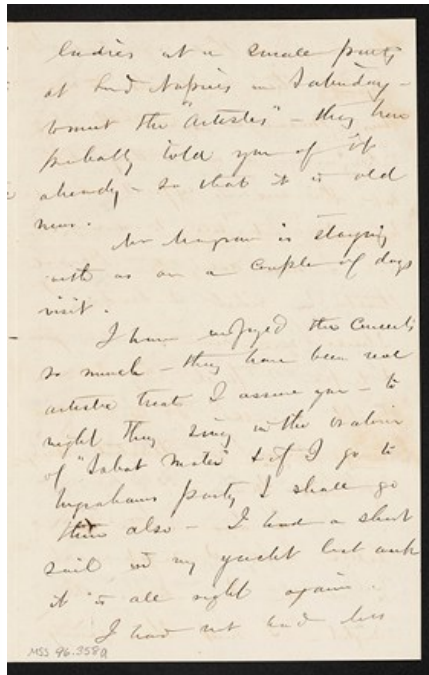 ladies at a small party
at Lord Napier's on Saturday -
to meet the "Artistes" - they have
probably told you of it
already - so that it is old
news.
Mr is staying
with us on a couple of days
visit.
I have enjoyed the Concerts
so much - they have been real
artistic treat I assure you - to
night they sing in the oratorio
of "Stabat Mater" & if I go to
Ingrahams party I shall go
there also - I had a short
sail in my yacht last week
it is all right again.
I had not had
MSS 96.358a